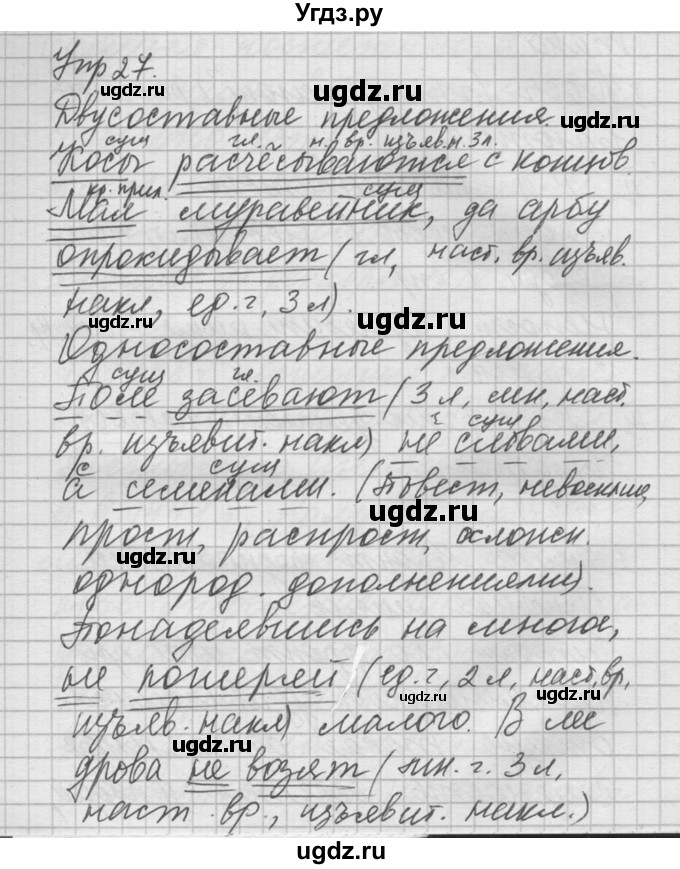 Угдз.ру
Упр 27.
ugdz.ru ugdz.ru
Двусоставные предложения.
сущ гл. н.вр. изъяв.н. 3л.
Косы расчёсываются с концов.
ugdz.ru
кр. прил. сущ
Мал муравейник, да арбу
ugdz.ru
опрокидывает (гл, наст. вр. изъяв.
накл, ед. г, 3 л).
ugdz.ru ugdz.ru
Односоставные предложения.
сущ гл.
Поле засевают (3 л, мн, наст.
ugdz.ru
вр. изъявит. накл) не словами,
сущ
а семенами. (Повест, невосклиц,
сущ
ugdz.ru
прост, распрост, осложн.
ugdz.ru
однород. дополнениями).
Понадеявшись на многое,
ugdz.ru
не потеряй (ед. ч, 2 л, наст, вр,
ugdz.ru ugdz.ru
изъяв. накл) малого. В лес
ugdz.ru
дрова не возят (мн. г. 3 л,
наст. вр., изъявит. накл.)
ugdz.ru